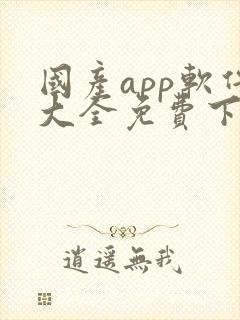 國產app軟件
大全免費下
逍遙無我